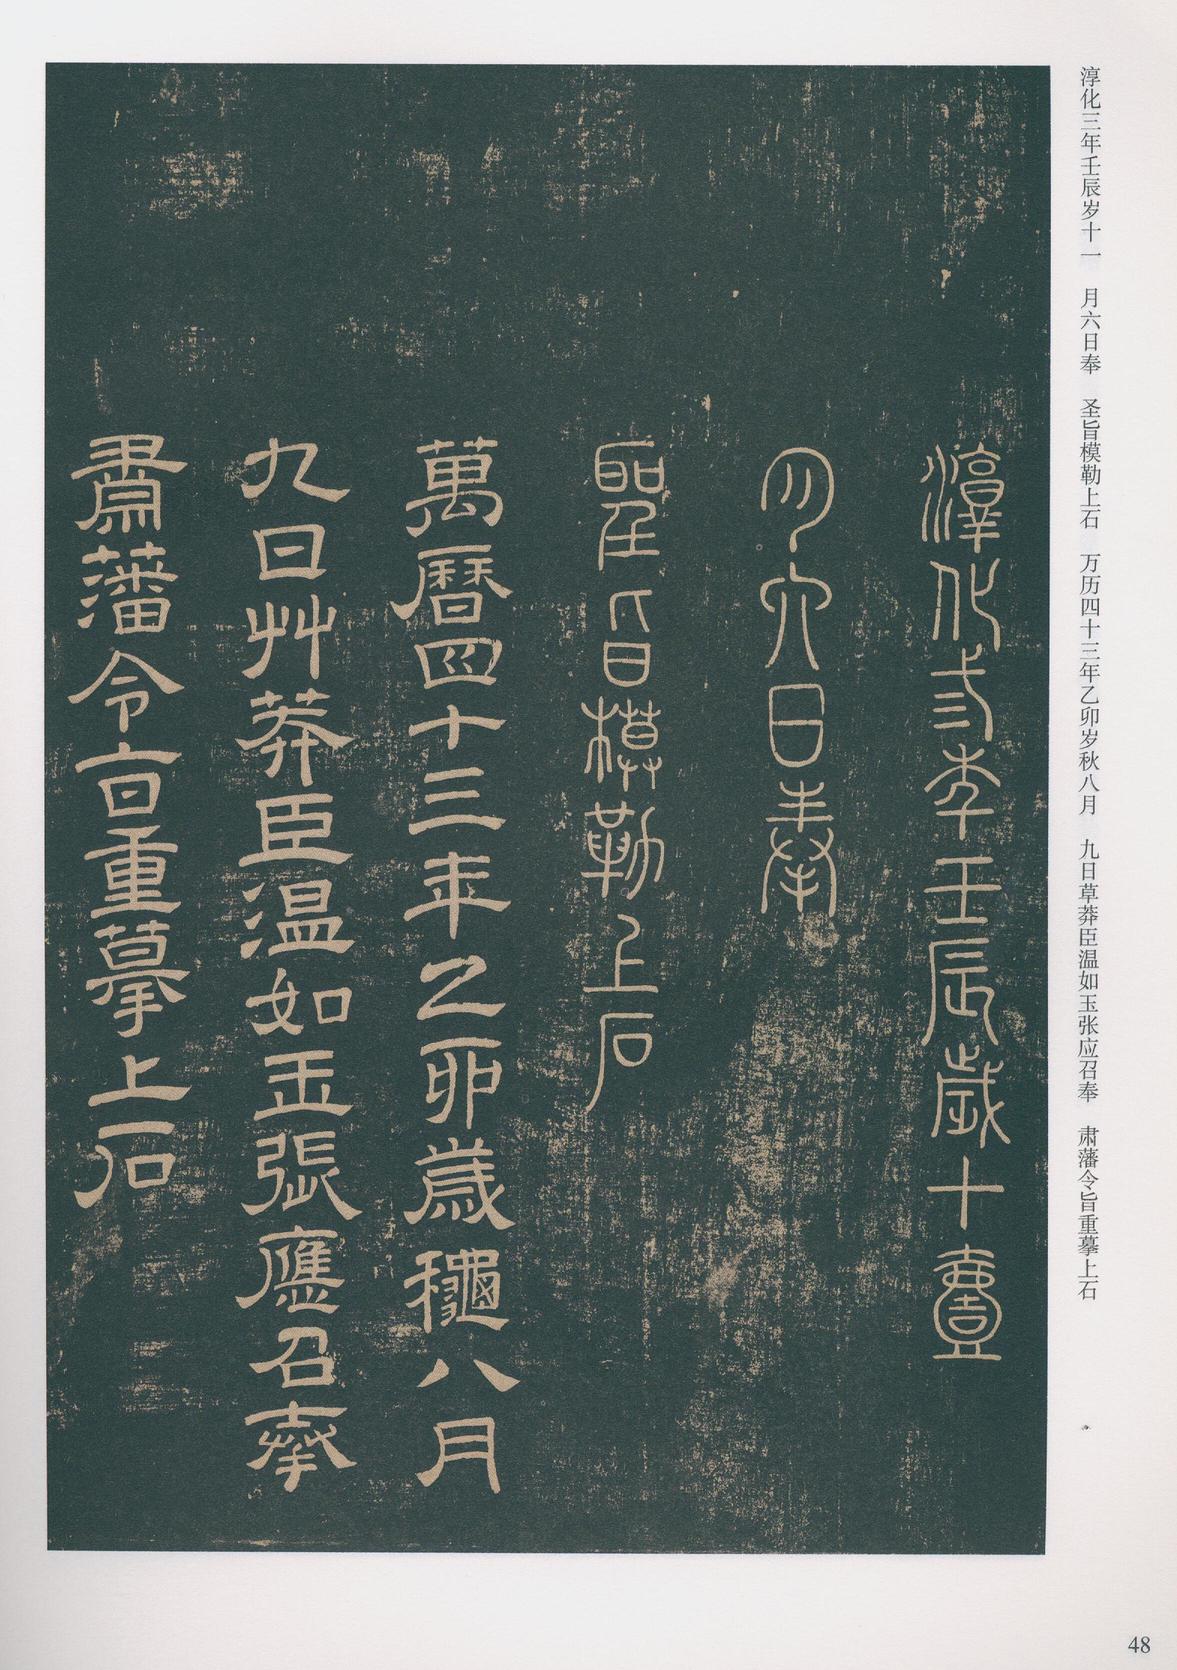 淳化三年壬辰岁十一 月六日奉 圣旨模勒上石 万历四十三年乙卯岁秋八月 九日草莽臣温如玉张应召奉 肃藩令旨重摹上石
淳化弎年壬辰歲十壹
月六日奉
聖旨模勒上石
萬曆四十三年乙卯歲龝八月
九日艸莽臣温如玉張應召奉
肅藩令旨重摹上石
48